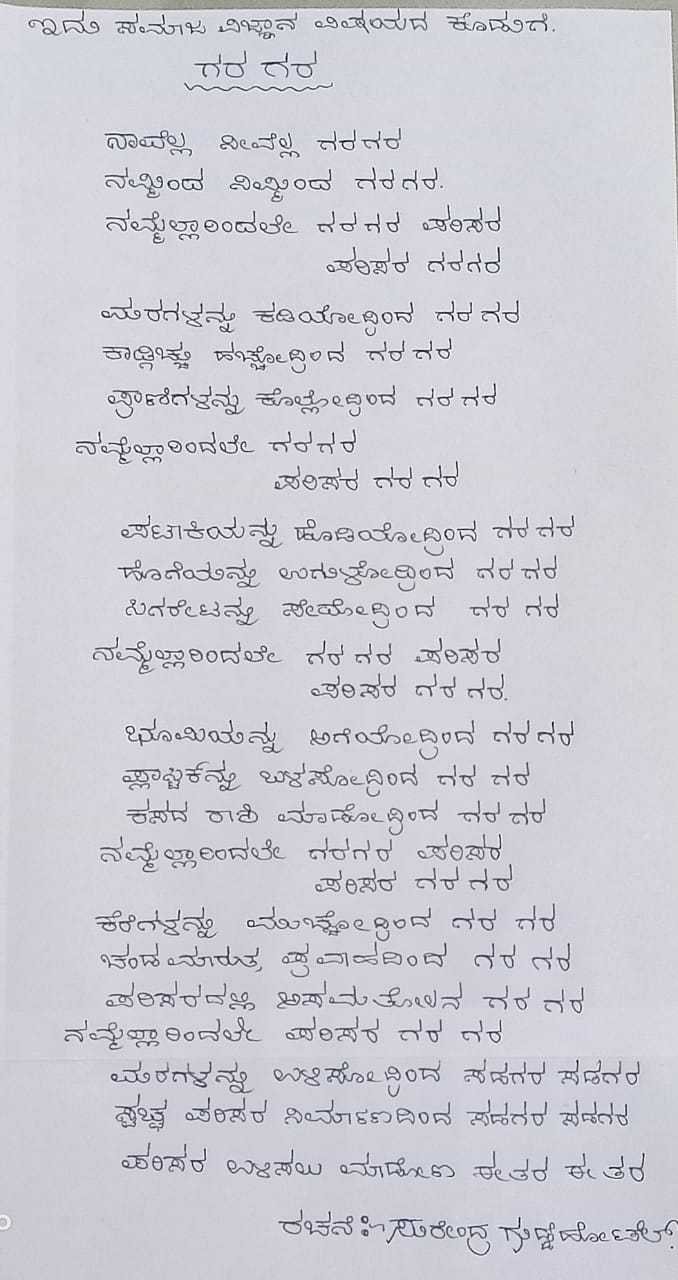 ಇದು ಸಮಾಜ ವಿಜ್ಞಾನ ವಿಷಯದ ಕೊಡುಗೆ.
ಗರ ಗರ
ನಾವೆಲ್ಲ ನೀವೆಲ್ಲ ಗರಗರ
ನಮ್ಮಿಂದ ನಿಮ್ಮಿಂದ ಗರಗರ.
ನಮ್ಮೆಲ್ಲಾರಿಂದಲೇ ಗರಗರ ಪರಿಸರ
ಪರಿಸರ ಗರಗರ
ಮರಗಳನ್ನು ಕಡಿಯೋದ್ರಿಂದ ಗರಗರ
ಕಾಡ್ಗಿಚ್ಚು ಹಚ್ಚೋದ್ರಿಂದ ಗರಗರ
ಪ್ರಾಣಿಗಳನ್ನು ಕೊಲ್ಲೋದ್ರಿಂದ ಗರಗರ
ನಮ್ಮೆಲ್ಲಾರಿಂದಲೇ ಗರಗರ
ಪರಿಸರ ಗರ ಗರ
ಪಟಾಕಿಯನ್ನು ಹೊಡಿಯೋದ್ರಿಂದ ಗರ ಗರ
ಹೊಗೆಯನ್ನು ಉಗುಳೋದ್ರಿಂದ ಗರ ಗರ
ಸಿಗರೇಟನ್ನು ಸೇದೋದ್ರಿಂದ ಗರ ಗರ
ನಮ್ಮೆಲ್ಲಾರಿಂದಲೇ ಗರ ಗರ ಪರಿಸರ
ಪರಿಸರ ಗರ ಗರ.
ಭೂಮಿಯನ್ನು ಅಗೆಯೋದ್ರಿಂದ ಗರ ಗರ
ಪ್ಲಾಸ್ಟಿಕ್‌ನ್ನು ಬಳಸೋದ್ರಿಂದ ಗರ ಗರ
ಕಸದ ರಾಶಿ ಮಾಡೋದ್ರಿಂದ ಗರ ಗರ
ನಮ್ಮೆಲ್ಲಾರಿಂದಲೇ ಗರಗರ ಪರಿಸರ
ಪರಿಸರ ಗರ ಗರ
ಕೆರೆಗಳನ್ನು ಮುಚ್ಚೋದ್ರಿಂದ ಗರ ಗರ
ಚಂಡಮಾರುತ, ಪ್ರವಾಹದಿಂದ ಗರ ಗರ
ಪರಿಸರದಲ್ಲಿ ಅಸಮತೋಲನ ಗರ ಗರ
ನಮ್ಮೆಲ್ಲಾರಿಂದಲೇ ಪರಿಸರ ಗರ ಗರ
ಮರಗಳನ್ನು ಉಳಿಸೋದ್ರಿಂದ ಸಡಗರ ಸಡಗರ
ಸ್ವಚ್ಛ ಪರಿಸರ ನಿರ್ಮಾಣದಿಂದ ಸಡಗರ ಸಡಗರ
ಪರಿಸರ ಉಳಿಸಲು ಮಾಡೋಣ ಈ ತರ ಈ ತರ
ರಚನೆ:- ಸುರೇಂದ್ರ